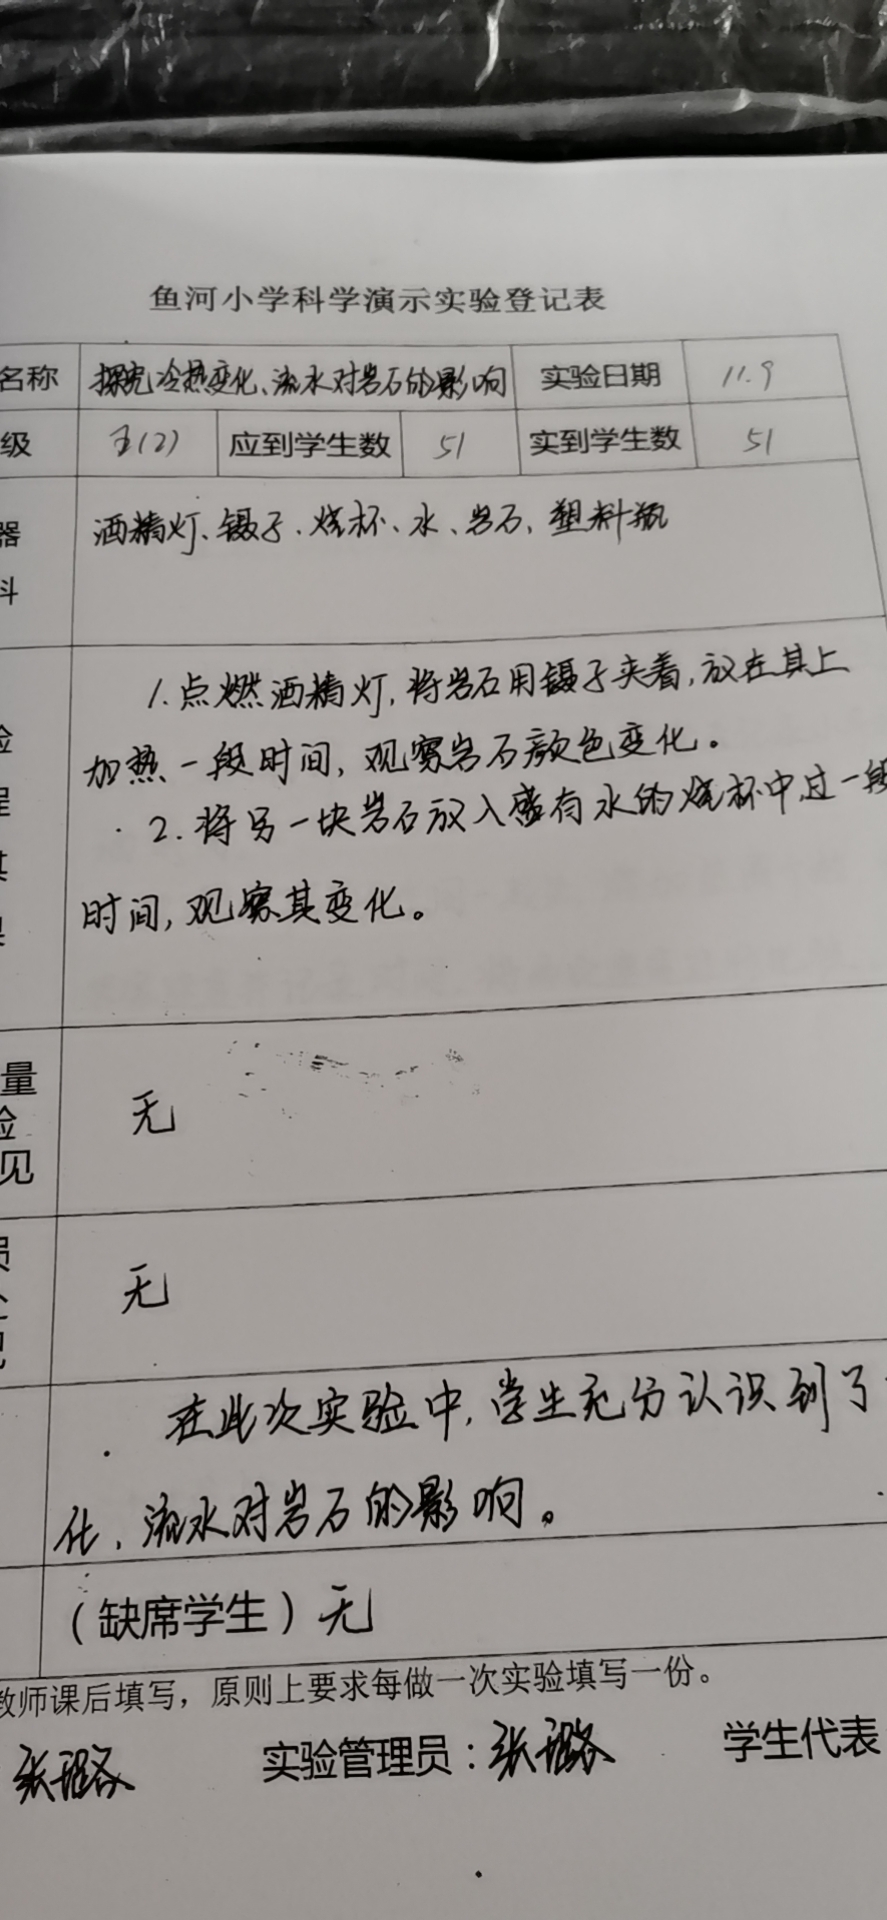 鱼河小学科学演示实验登记表
名称 探究冷热变化、流水对岩石的影响 实验日期 11.9
级 五(2) 应到学生数 51 实到学生数 51
器 酒精灯、镊子、烧杯、水、岩石、塑料瓶
料
1.点燃酒精灯,将岩石用镊子夹着,放在其上
验 加热一段时间,观察岩石颜色变化。
程 2.将另一块岩石放入盛有水的烧杯中,过一段
其 时间,观察其变化。
果
量
验 无
见
员
无
见
在此次实验中,学生充分认识到了
化、流水对岩石的影响。
(缺席学生)无
教师课后填写,原则上要求每做一次实验填写一份。
张璐 实验管理员:张璐 学生代表